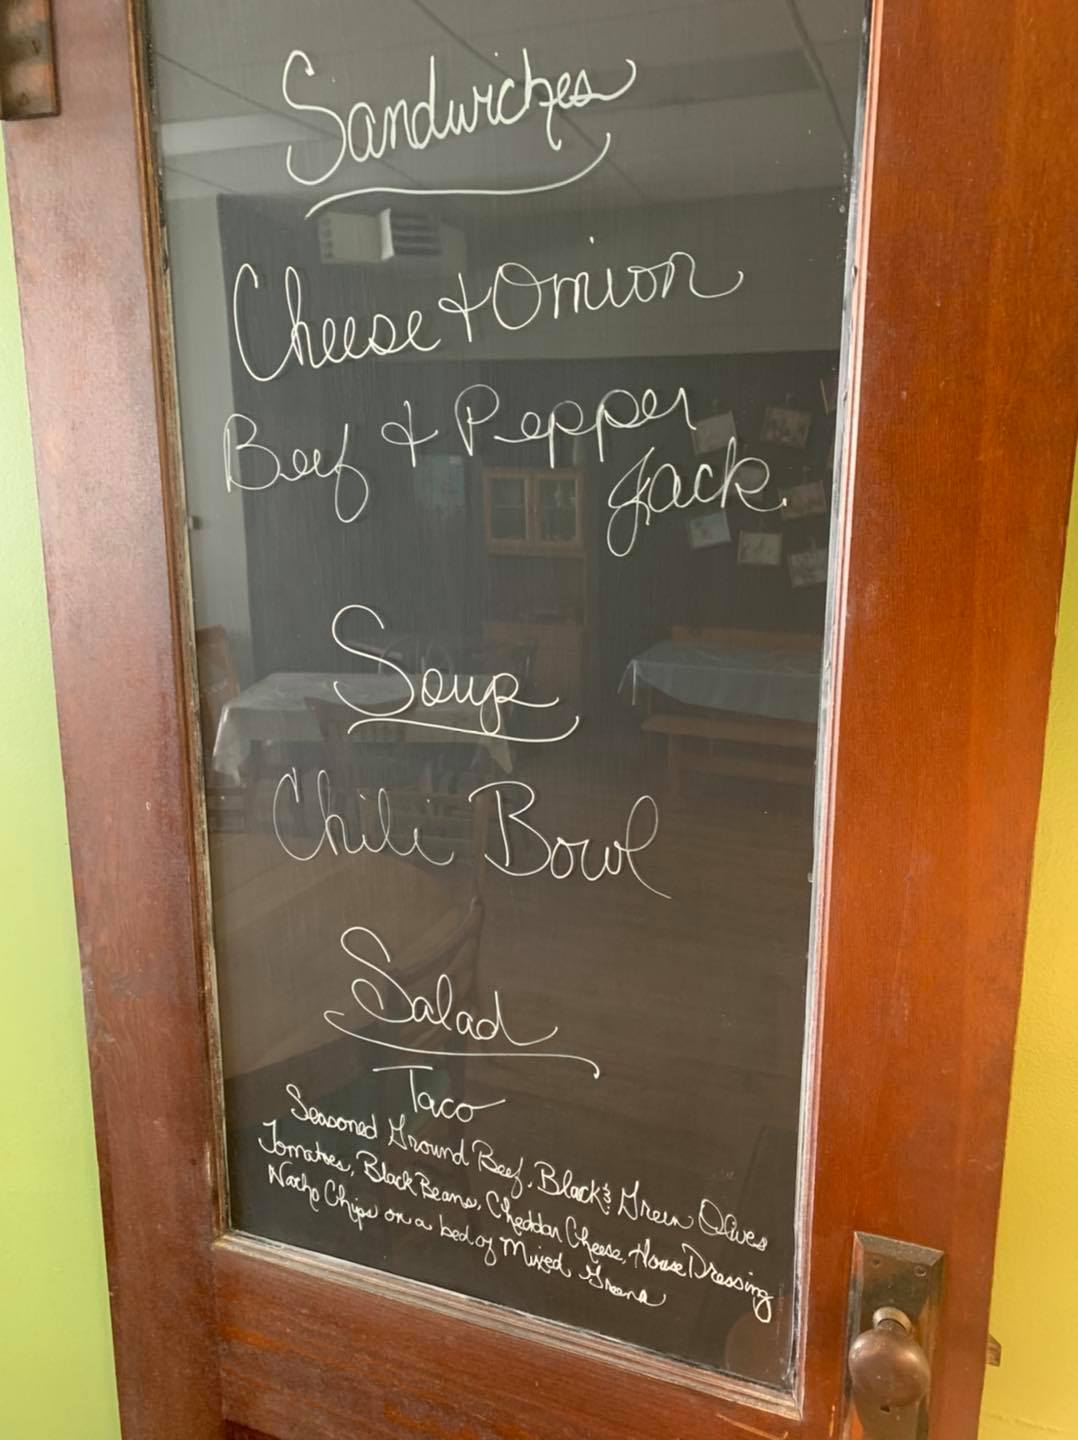 Sandwiches
Cheese + Onion
Beef + Pepper
Jack
Soup
Chili Bowl
Salad
Taco
Seasoned Ground Beef, Black & Green Olives
Tomatoes, Black Beans, Cheddar Cheese, House Dressing
Nacho Chips on a bed of Mixed Greens